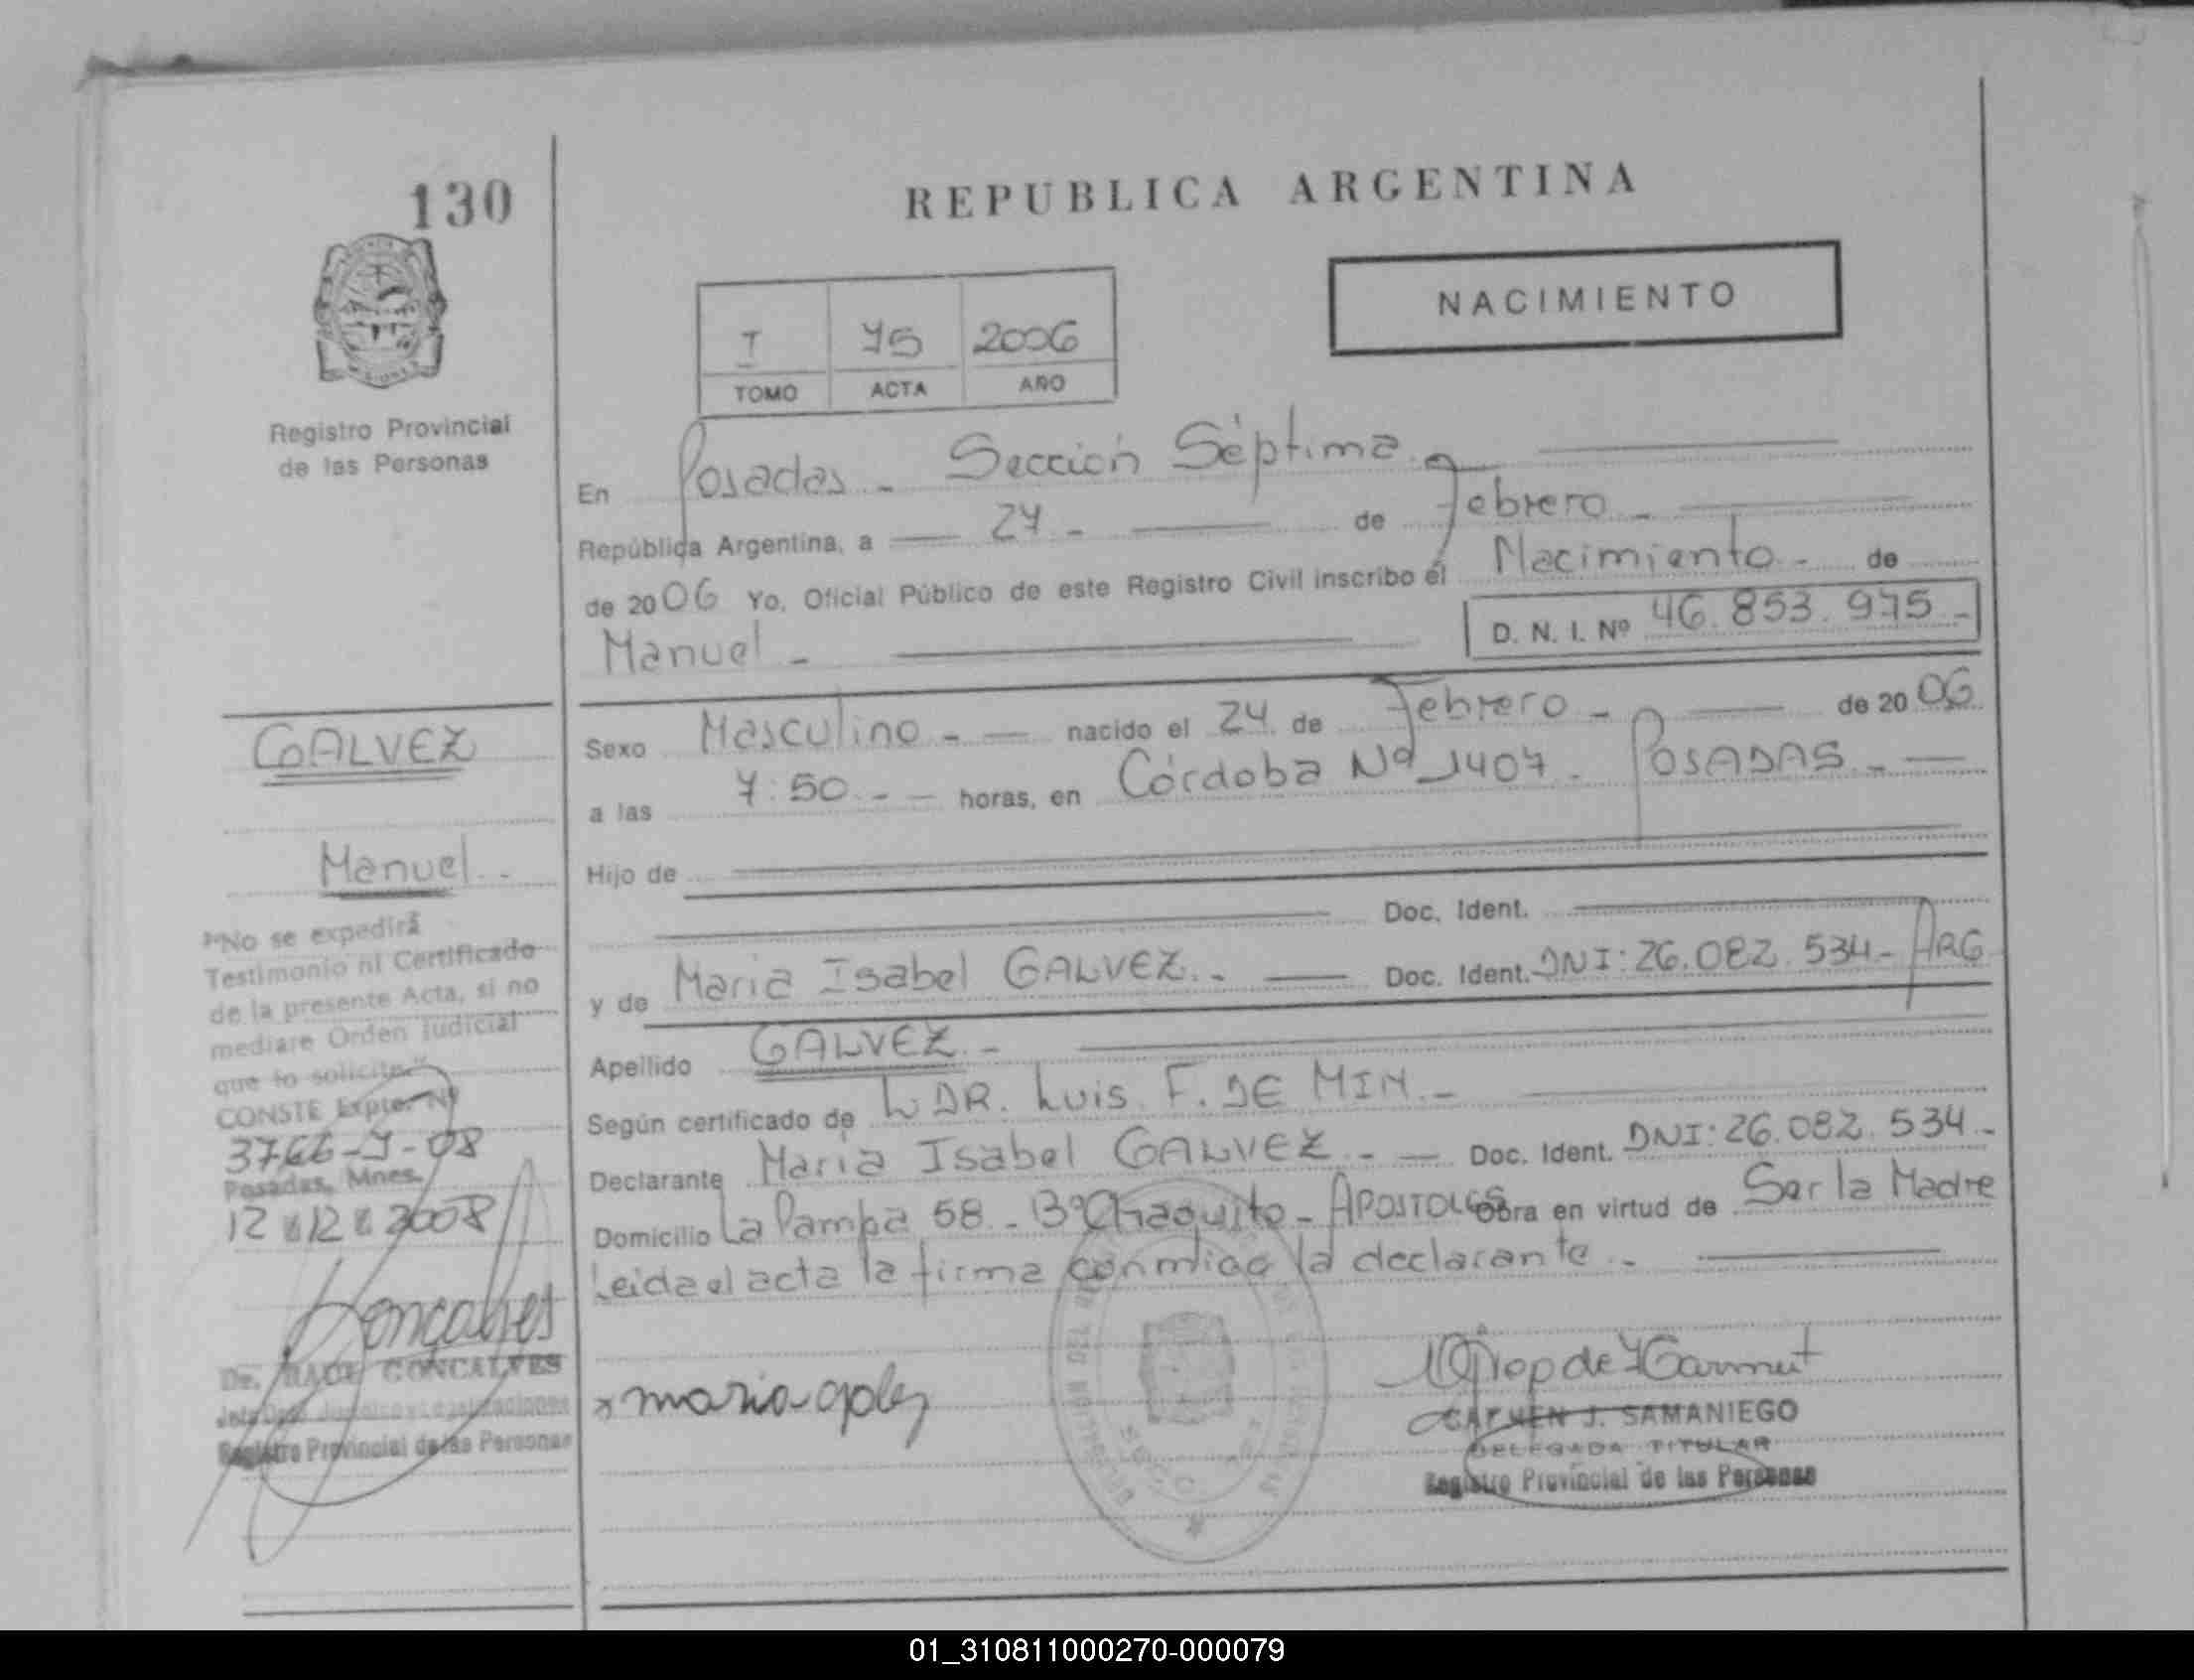 130
REPUBLICA ARGENTINA
NACIMIENTO
I 75 2006
TOMO ACTA AÑO
Registro Provincial
de las Personas
En Posadas - Sección Séptima.
República Argentina, a 27 - de Febrero -
de 2006 Yo, Oficial Público de este Registro Civil inscribo el Nacimiento - de
Manuel - D. N. I. Nº 46.853.975 -
Sexo Masculino - - nacido el 24 de Febrero - de 2006
a las 7:50 - - horas, en Córdoba Nº 1407 - POSADAS - -
Hijo de
Doc. Ident.
y de Maria Isabel GALVEZ - Doc. Ident. DNI: 26.082.534 - ARG
Apellido GALVEZ -
Según certificado de DR. Luis F. DE MIN -
Declarante Maria Isabel GALVEZ - - Doc. Ident. DNI: 26.082.534 -
Domicilio La Pampa 58 - Bº Chaquito - APOSTOLES Obra en virtud de Ser la Madre
Leida el acta la firma conmigo la declarante -
GALVEZ
Manuel -
"No se expedirá
Testimonio ni Certificado
de la presente Acta, si no
mediare Orden Judicial
que lo solicite"
CONSTE Expte. Nº
3766-J-08
Posadas, Mnes.
12 12 2008
Goncalves
Dr. RAUL GONCALVES
Registro Provincial de las Personas
x maria galvez
CARMEN J. SAMANIEGO
DELEGADA TITULAR
Registro Provincial de las Personas
01_310811000270-000079